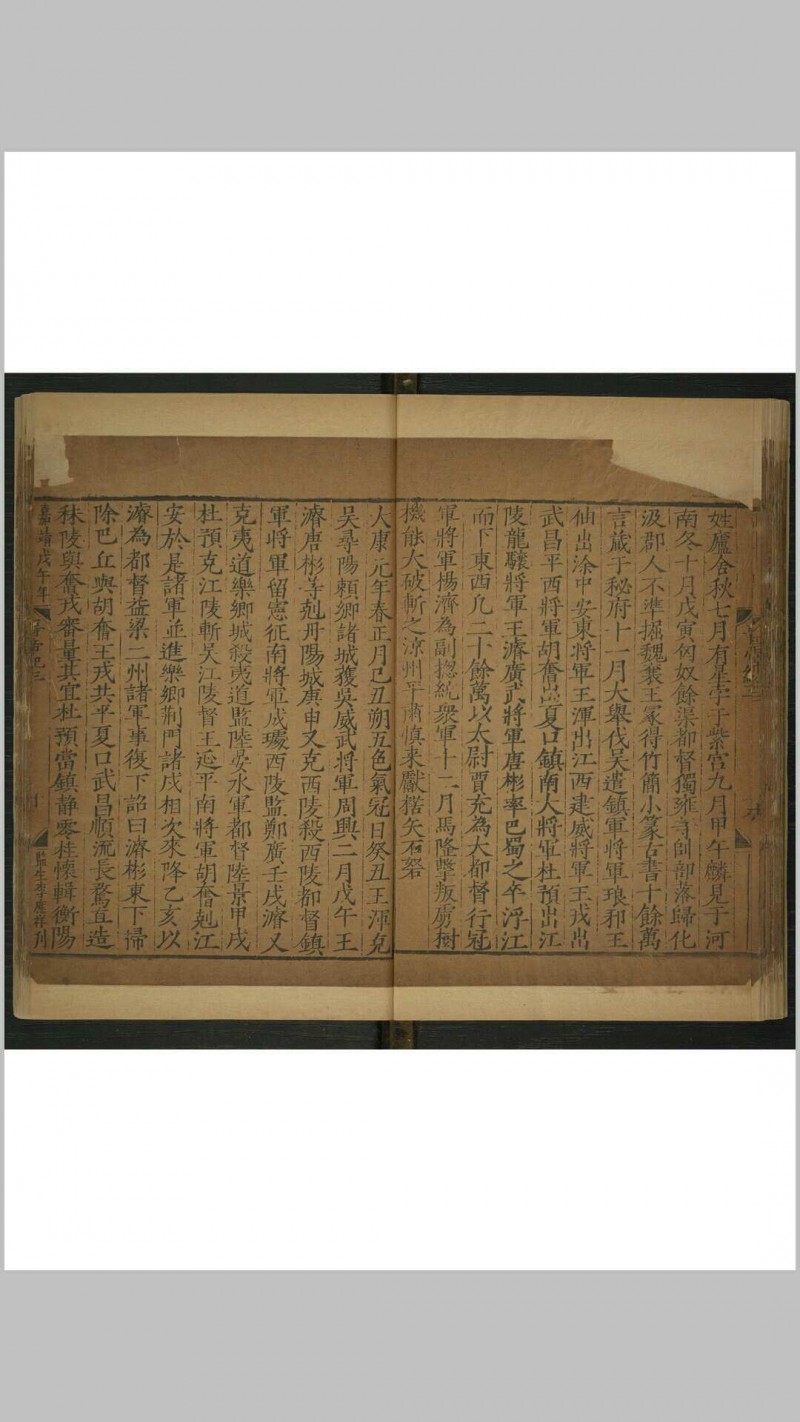 姓廬舍秋七月有星孛于紫宫九月甲午麟見于河
南冬十月戊寅匈奴餘渠都督獨雍等帥部落歸化
汲郡人不準掘魏襄王冢得竹簡小篆古書十餘萬
言蔵于秘府十一月大舉伐吴遣鎮軍將軍琅邪王
伷出涂中安東將軍王渾出江西建威將軍王戎出
武昌平西將軍胡奮出夏口鎮南大將軍杜預出江
陵龍驤將軍王濟廣武將軍唐彬率巴蜀之卒浮江
而下東西凢二十餘萬以太尉賈充為大都督行冠
軍將軍楊濟為副揔統衆軍十二月馬隆擊叛虜樹
機能大破斬之涼州平肅慎来獻楛矢石砮
大康元年春正月己丑朔五色氣冠日癸丑王渾克
吴尋陽頼鄉諸城獲吳威武將軍周興二月戊午王
濬唐彬等剋丹陽城庚申又克西陵殺西陵都督鎮
軍將軍留憲征南將軍成璩西陵監鄭廣壬戌濬又
克夷道樂鄉城殺夷道監陸晏水軍都督陸景甲戌
杜預克江陵斬吴江陵督王延平南將軍胡奮剋江
安於是諸軍並進樂鄉荆門諸戍相次來降乙亥以
濬為都督益梁二州諸軍事復下詔曰濬彬東下掃
除巴丘與胡奮王戎共平夏口武昌順流長騖直造
秣陵與奮戎審量其宜杜預當鎮静零桂懷輯衡陽
嘉靖戊午年
監生李應祥刋